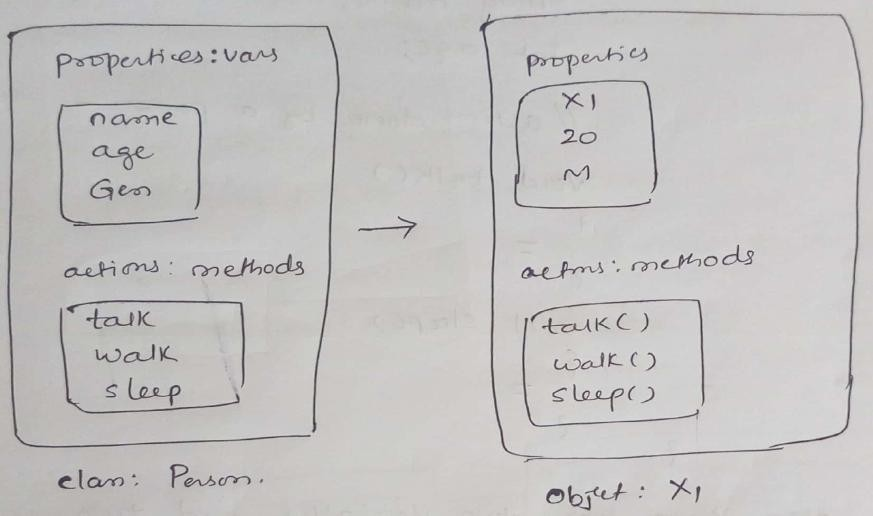 properties: vars
name
age
Gen
actions: methods
talk
walk
sleep
class: Person.
properties
X1
20
M
actions: methods
talk()
walk()
sleep()
object: X1